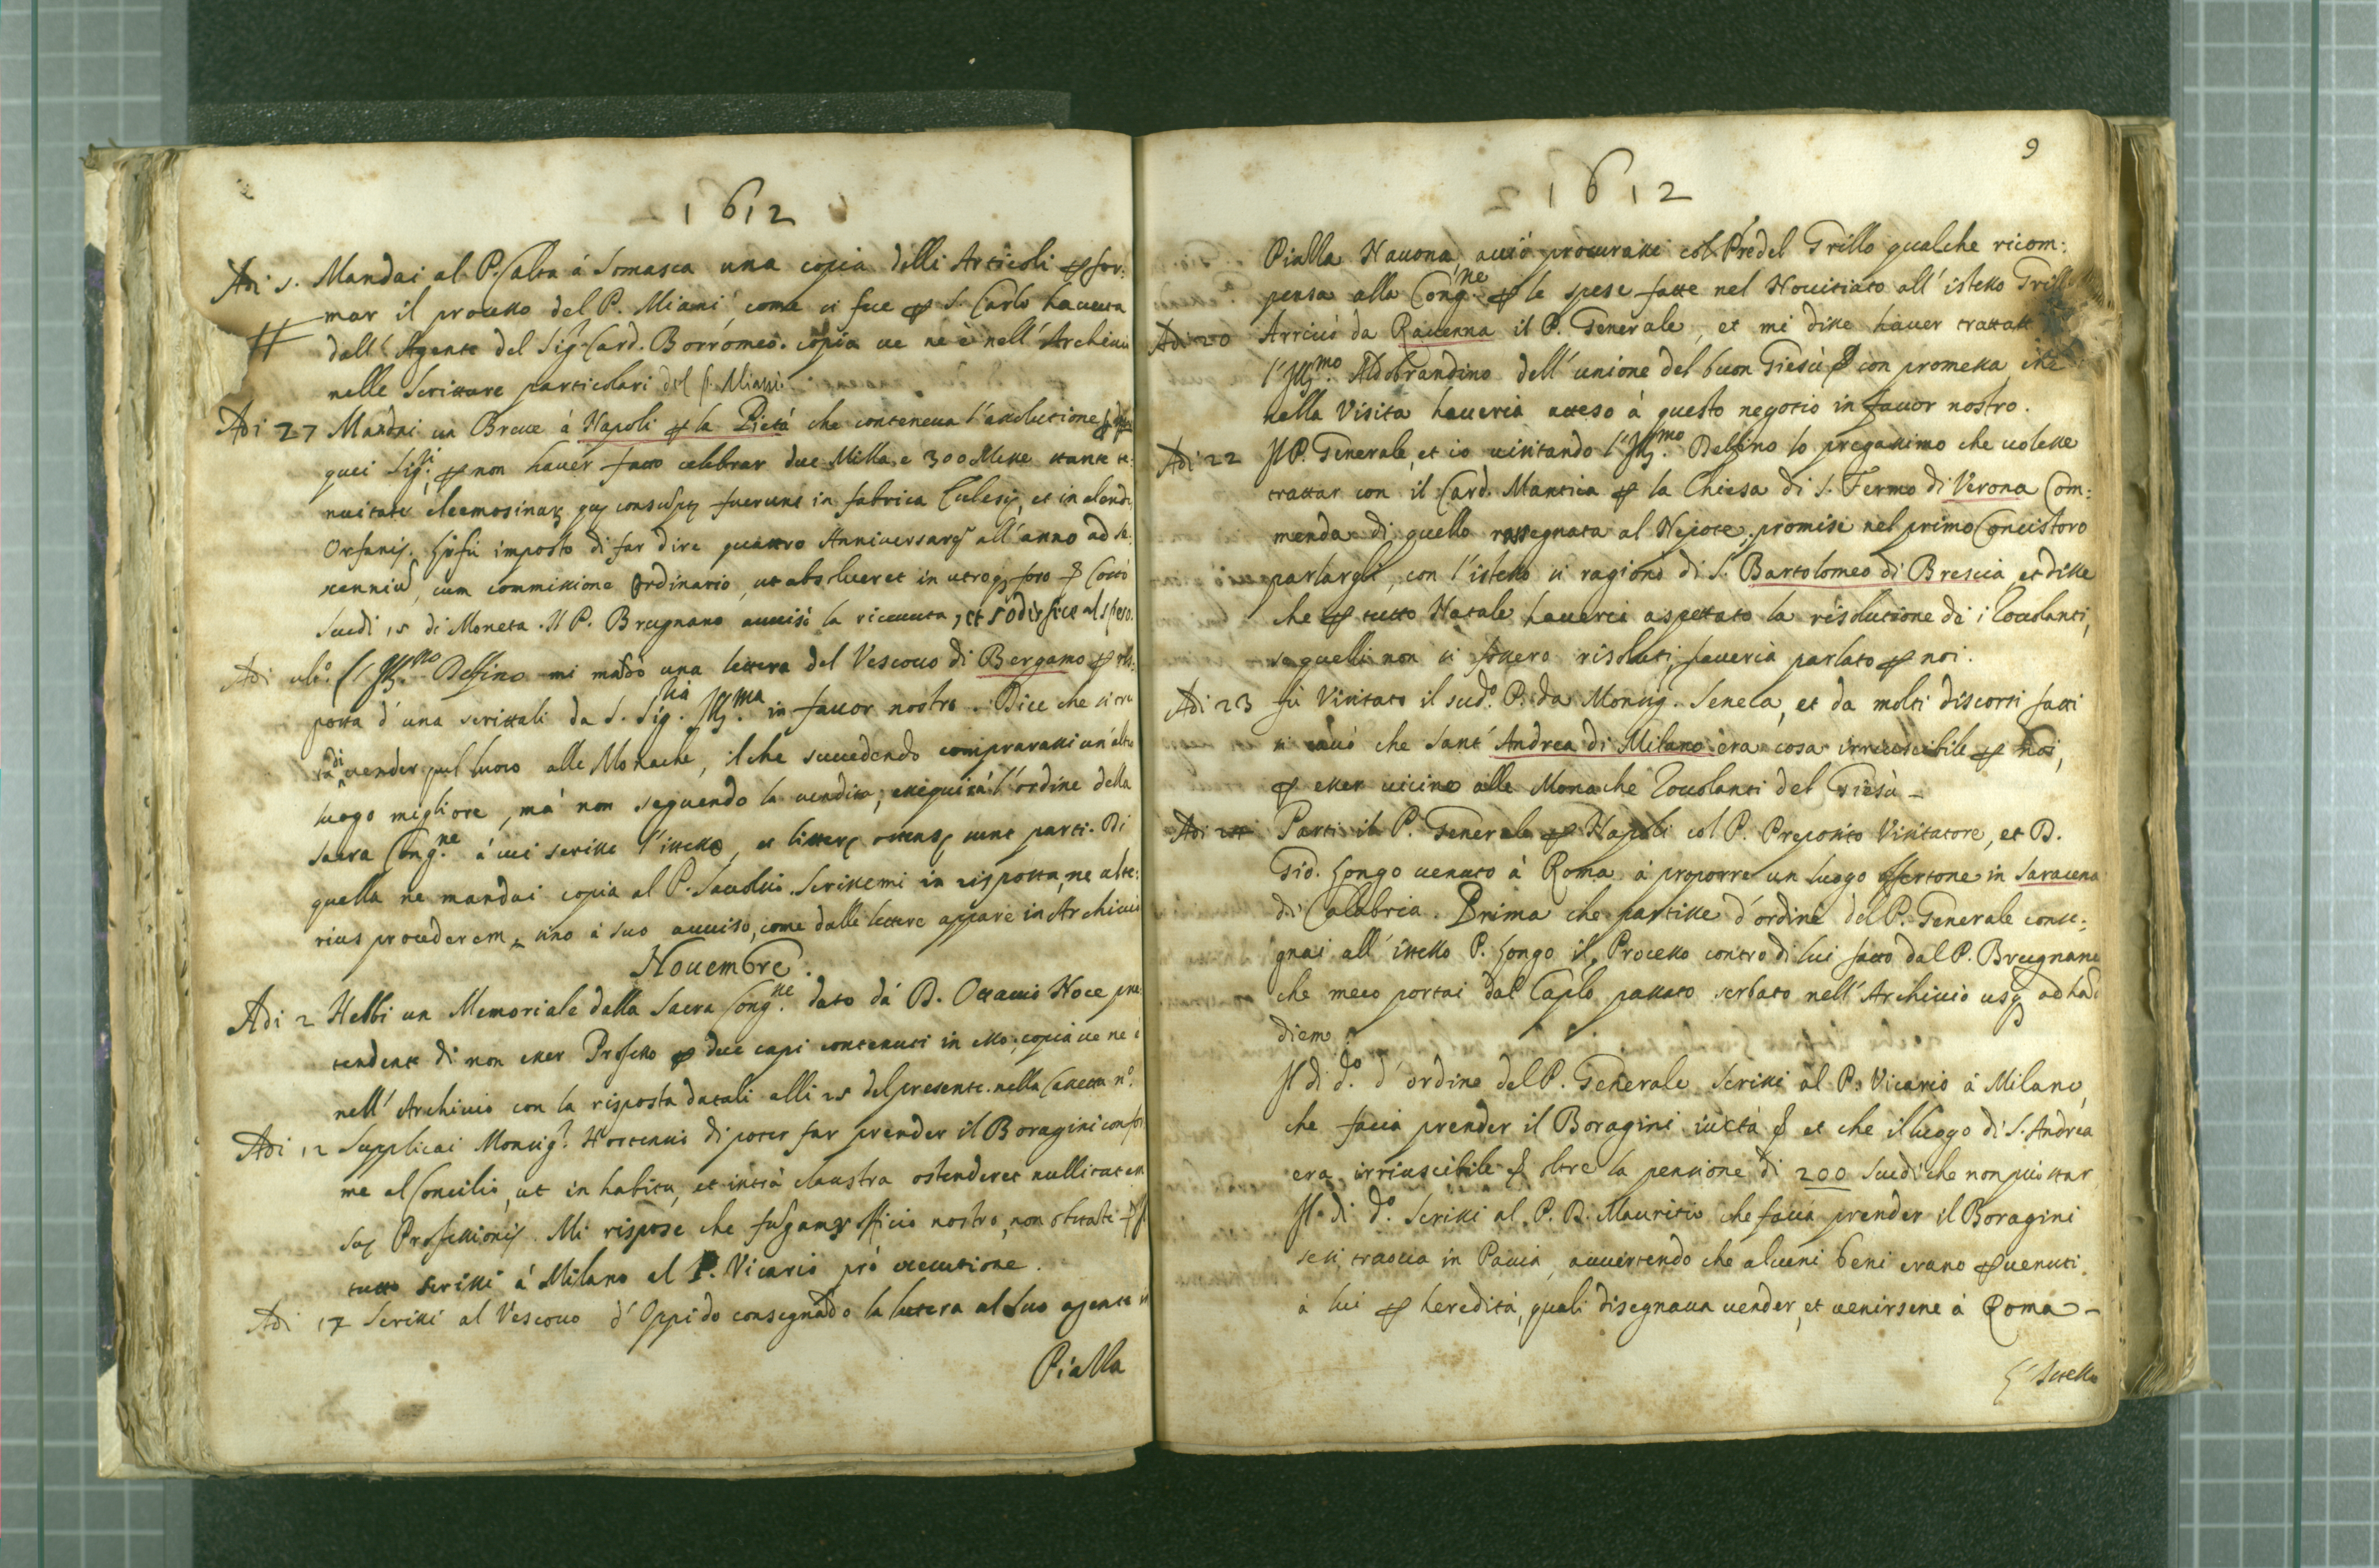 1612
Adi 5. Mandai al P. Calta à Somasca una copia delli Articoli per for:
mar il processo del P. Miani, come si fece per S. Carlo havuta
dall' Agente del Sig.r Card. Borromeo. copia ve nè è nell' Archivio
nelle Scritture particolari del P. Miani
Adi 27 Mandai un Breve à Napoli per la Pietà che conteneva l'assolutione
quei Sig.ri per non haver fatto celebrar due Milla, e 300 Messe stante
nuitate eleemosinar. quę consumptę fuerunt in fabrica Ecclesię, et in alendis
Orfanis. Gli fù imposto di far dire quattro Anniversarij all' anno ad se:
xennium, cum commissione Ordinario, ut absolveret in utroq. foro & Costò
Scudi 15 di Moneta. Il P. Brugnano avvisò la ricevuta, et sodisfice al speso.
Adi ult.o l'Ill.mo Delfino mi mandò una lettera del Vescovo di Bergamo per ris:
posta d'una scrittali da S. Sig.ria Ill.ma in favor nostro. Dice che si era
di vender quel luoco alle Monache, il che succedendo comprarassi un' altro
luogo migliore, mà non seguendo la vendita, esequirà l'ordine della
Sacra Cong.ne à cui scrisse l'istesso, et litterę ostensę sunt parti. Di
quella ne mandai copia al P. Scrissemi in risposta, ne alte:
rius procederem, sino à suo avviso, come dalle lettere appare in Archivio
Novembre.
Adi 2 Hebbi un Memoriale dalla Sacra Cong.ne dato dà D. Ottavio Noce pre
tendente di non esser Professo per due capi contenuti in esso, copia ve ne è
nell' Archivio con la risposta datali alli 25 del presente. nella Cassetta n.o
Adi 12 Supplicai Monsig.r Hortensio di poter far prender il Boragini confor
me al Concilio, ut in habitu, et intrà claustra ostenderet nullitatem
suę Professionis. Mi rispose che fusgamur officio nostro, non ostante &
tutto scrissi à Milano al P. Vicario prò executione.
Adi 17 Scrissi al Vescovo d'Oppido consegnando la lettera al suo agente in
Piazza
9
1612
Piazza Navona, acciò procurasse col Padre del Grillo qualche ricom:
pensa alla Cong.ne per le spese fatte nel Novitiato all' istesso Grillo
Adi 20 Arrivò da Ravenna il P. Generale, et mi disse haver trattato
l'Ill.mo Aldobrandino dell' unione del buon Giesù & con promessa, che
nella Visita haveria atteso à questo negotio in favor nostro.
Adi 22 Il P. Generale, et io visitando l'Ill.mo Delfino lo pregassimo che volesse
trattar con il Card. Mantica per la Chiesa di S. Fermo di Verona Com:
menda di quello rassegnata al Nepote. promise nel primo Concistoro
parlargli, con l'istesso si ragionò di S. Bartolomeo di Brescia, et disse
che per tutto Natale haveria aspettato la risolutione da i Zoccolanti,
se quelli non si fossero risoluti, haveria parlato per noi.
Adi 23 fù Visitato il sud.o P. da Monsig. Seneca, et da molti discorsi fatti
si cavò che Sant' Andrea di Milano era cosa irriuscibile per noi,
per esser vicino alle Monache Zoccolanti del Giesù -
Adi 24 Partì il P. Generale per Napoli col P. Preposito Visitatore, et D.
Gio. Longo venuto à Roma à proporre un luogo offertone in Saracena
di Calabria. Prima che partisse d'ordine del P. Generale conse:
gnai all' istesso P. Longo il Processo contro di lui fatto dal P. Brugnano
che meco portai dal Cap.lo passato serbato nell' Archivio usq. ad hanc
diem.
Il dì d.o d'ordine del P. Generale scrissi al P. Vicario à Milano,
che facia prender il Boragini iuxtà & et che il luogo di S. Andrea
era irriuscibile & oltre la pensione di 200 scudi che non può star
Il dì d.o Scrissi al P. D. Mauritio che facia prender il Boragini
se si trova in Pavia, avvertendo che alcuni beni erano pervenuti
à lui per heredità, quali disegnava vender, et venirsene à Roma -
L'istesso